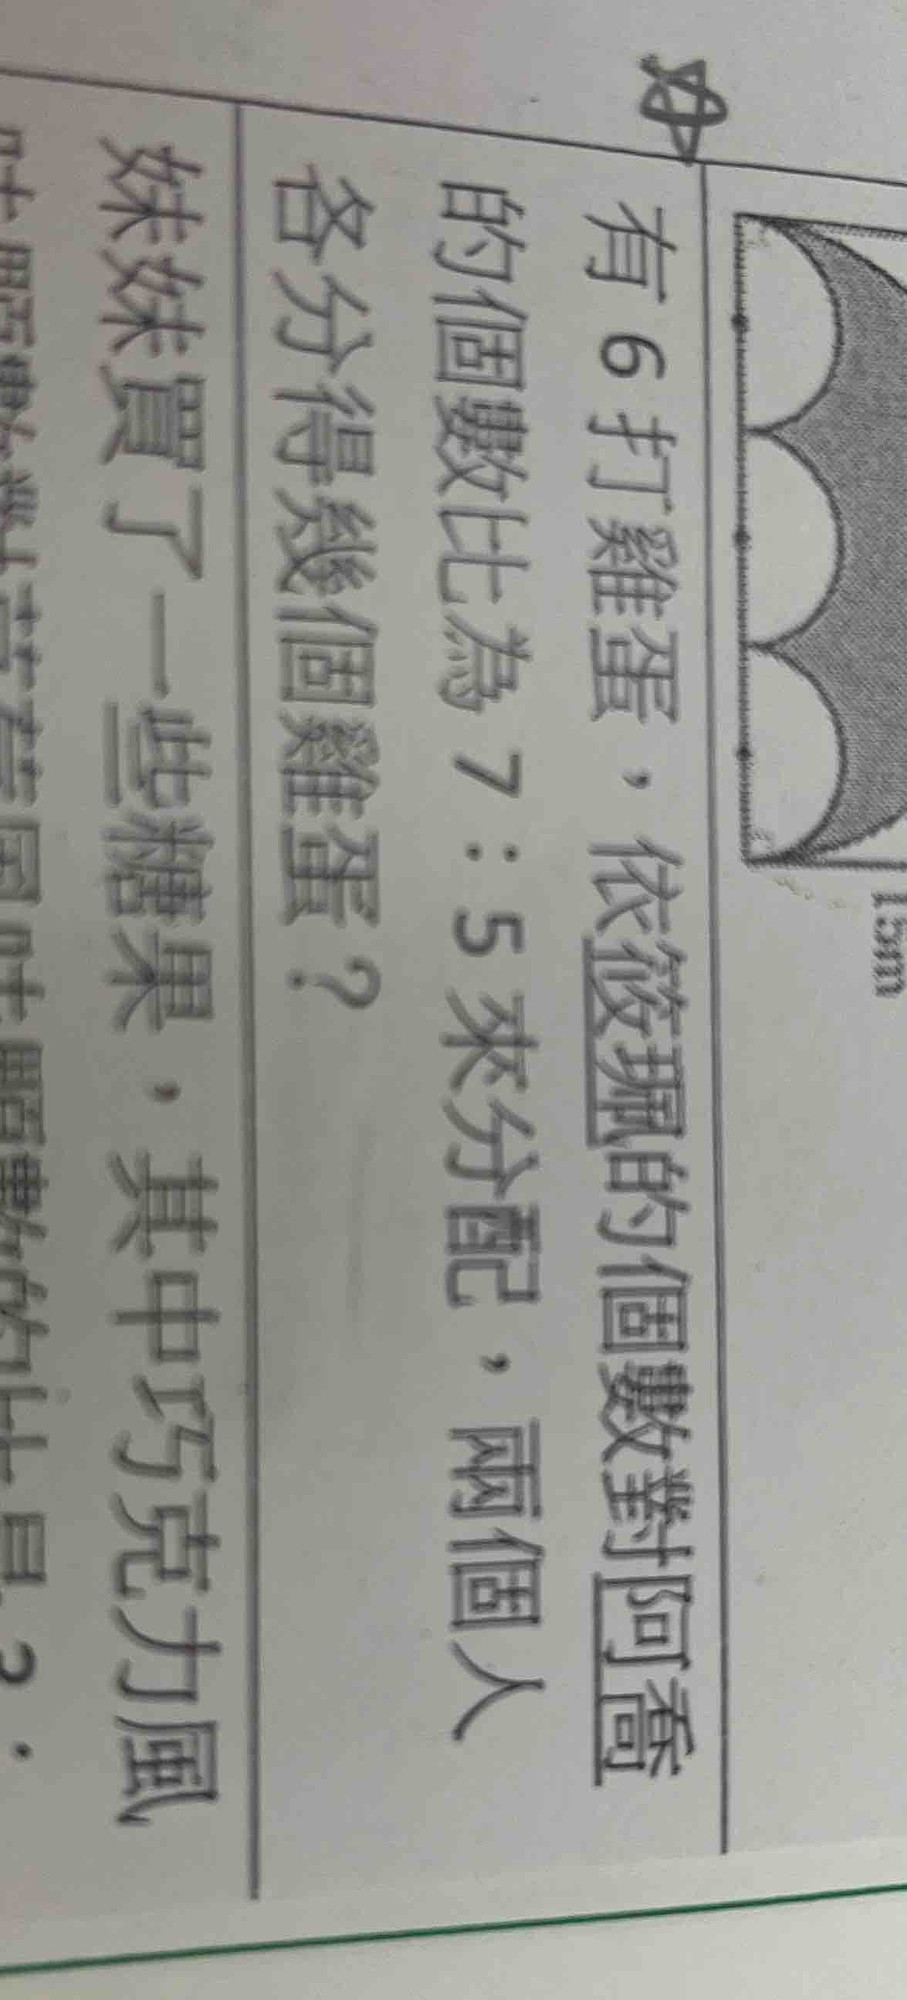 15m
有 6 打雞蛋，依筱珮的個數對阿喬
的個數比為 7：5 來分配，兩個人
各分得幾個雞蛋？
妹妹買了一些糖果，其中巧克力風